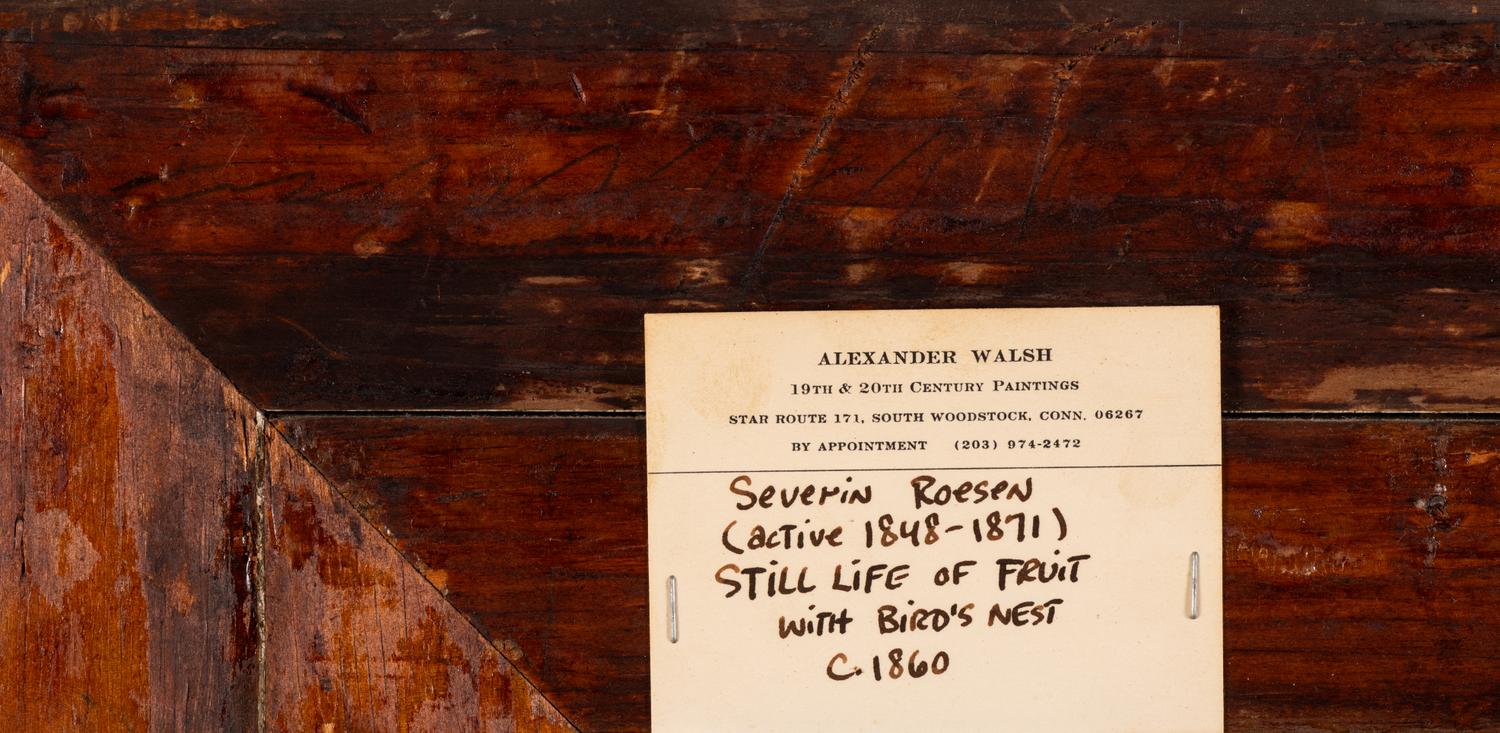 ALEXANDER WALSH
19TH & 20TH CENTURY PAINTINGS
STAR ROUTE 171, SOUTH WOODSTOCK, CONN. 06267
BY APPOINTMENT (203) 974-2472
Severin Roesen
(active 1848-1871)
STILL LIFE OF FRUIT
WITH BIRD'S NEST
C. 1860